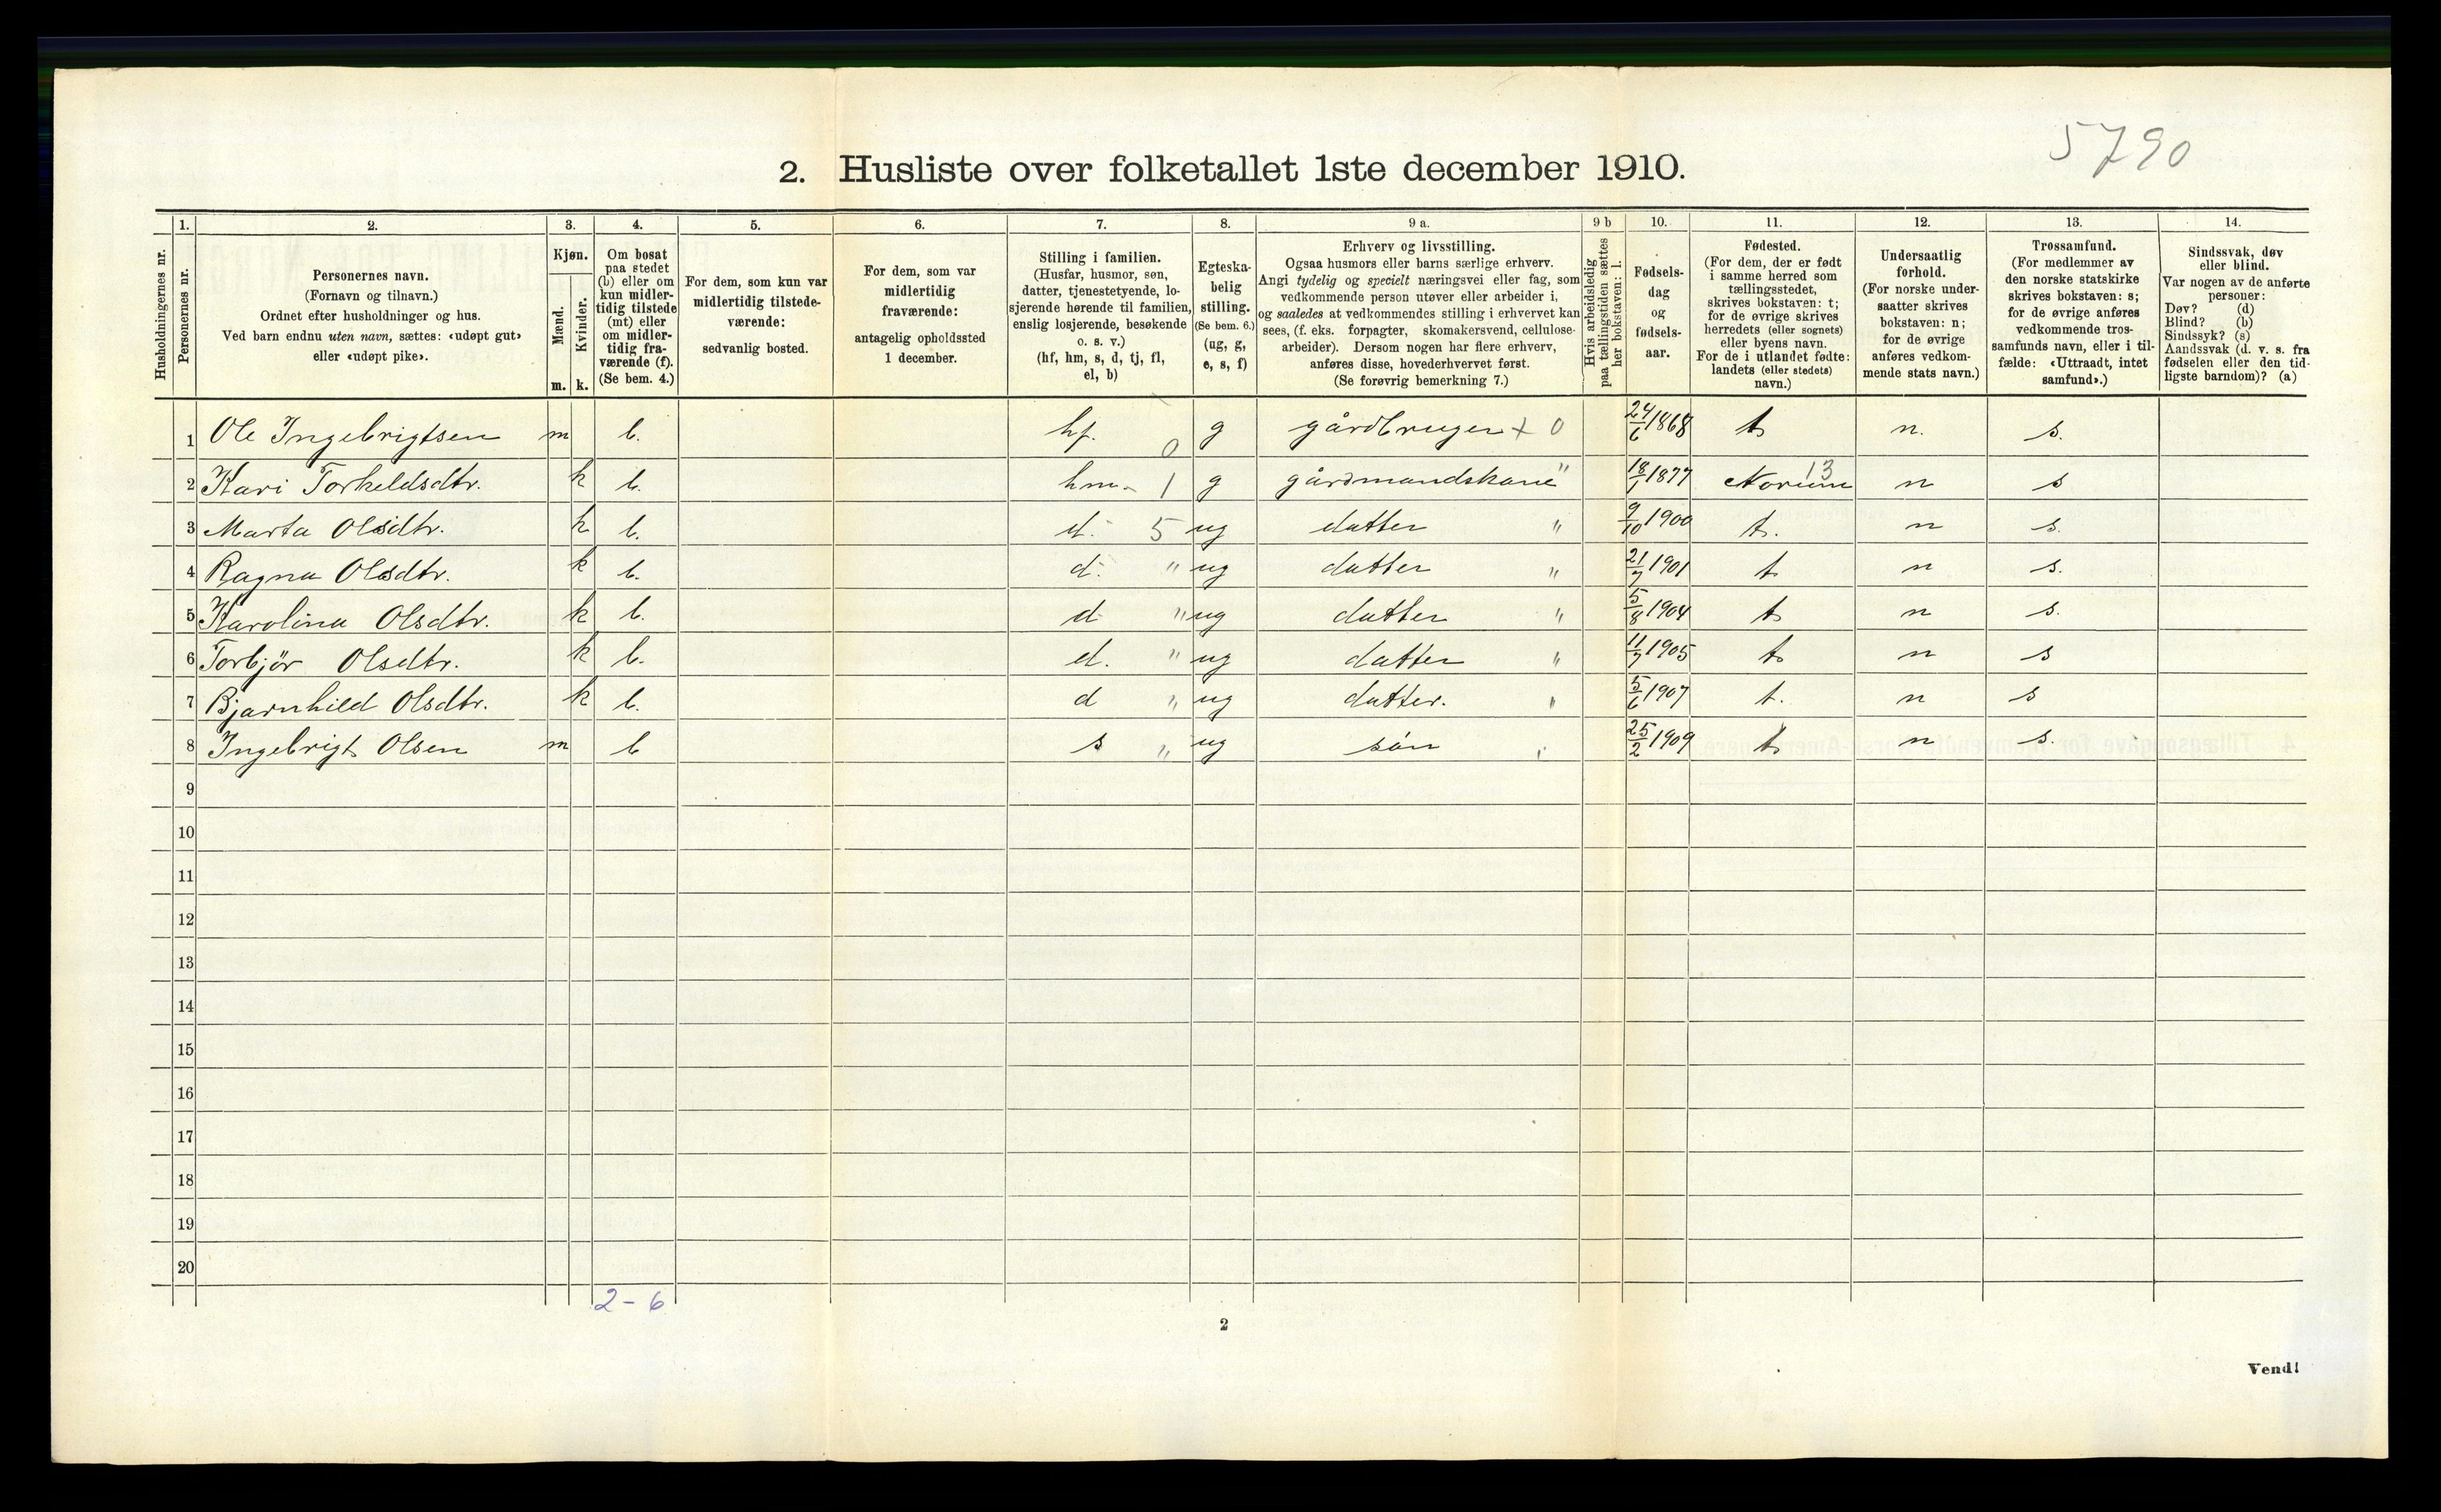 5790
2. Husliste over folketallet 1ste december 1910.
Husholdningernes nr.
1. Personernes nr.
2. Personernes navn.
(Fornavn og tilnavn.)
Ordnet efter husholdninger og hus.
Ved barn endnu uten navn, sættes: «udøpt gut»
eller «udøpt pike».
3. Kjøn.
Mænd. m.
Kvinder. k.
4. Om bosat
paa stedet
(b) eller om
kun midler-
tidig tilstede
(mt) eller
om midler-
tidig fra-
værende (f).
(Se bem. 4.)
5. For dem, som kun var
midlertidig tilstede-
værende:
sedvanlig bosted.
6. For dem, som var
midlertidig
fraværende:
antagelig opholdssted
1 december.
7. Stilling i familien.
(Husfar, husmor, søn,
datter, tjenestetyende, lo-
sjerende hørende til familien,
enslig losjerende, besøkende
o. s. v.)
(hf, hm, s, d, tj, fl,
el, b)
8. Egteska-
belig
stilling.
(Se bem. 6.)
(ug, g,
e, s, f)
9 a. Erhverv og livsstilling.
Ogsaa husmors eller barns særlige erhverv.
Angi tydelig og specielt næringsvei eller fag, som
vedkommende person utøver eller arbeider i,
og saaledes at vedkommendes stilling i erhvervet kan
sees, (f. eks. forpagter, skomakersvend, cellulose-
arbeider). Dersom nogen har flere erhverv,
anføres disse, hovederhvervet først.
(Se forøvrig bemerkning 7.)
9 b Hvis arbeidsledig
paa tællingstiden sættes
her bokstaven: l.
10. Fødsels-
dag
og
fødsels-
aar.
11. Fødested.
(For dem, der er født
i samme herred som
tællingsstedet,
skrives bokstaven: t;
for de øvrige skrives
herredets (eller sognets)
eller byens navn.
For de i utlandet fødte:
landets (eller stedets)
navn.)
12. Undersaatlig
forhold.
(For norske under-
saatter skrives
bokstaven: n;
for de øvrige
anføres vedkom-
mende stats navn.)
13. Trossamfund.
(For medlemmer av
den norske statskirke
skrives bokstaven: s;
for de øvrige anføres
vedkommende tros-
samfunds navn, eller i til-
fælde: «Uttraadt, intet
samfund».)
14. Sindssvak, døv
eller blind.
Var nogen av de anførte
personer:
Døv? (d)
Blind? (b)
Sindssyk? (s)
Aandssvak (d. v. s. fra
fødselen eller den tid-
ligste barndom)? (a)
1 Ole Ingebrigtsen m b. hf. 0 g gårdbruger + 0 24/6 1868 t n. s.
2 Kari Torkeldsdtr. k b. hm. 1 g gårdmandskone " 18/1 1877 13 n s
3 Marta Olsdtr. k b. d. 5 ug datter " 9/10 1900 t. n s.
4 Ragna Olsdtr. k b. d. " ug datter " 21/7 1901 t n s.
5 Karolina Olsdtr. k b. d " ug datter " 5/8 1904 t n s.
6 Torbjör Olsdtr. k b. d. " ug datter " 11/7 1905 t n s
7 Bjarnhild Olsdtr. k b. d " ug datter. " 5/6 1907 t. n s
8 Ingebrigt Olsen m b s " ug sön " 25/2 1909 t n s.
9
10
11
12
13
14
15
16
17
18
19
20
2 - 6
2
Vend!